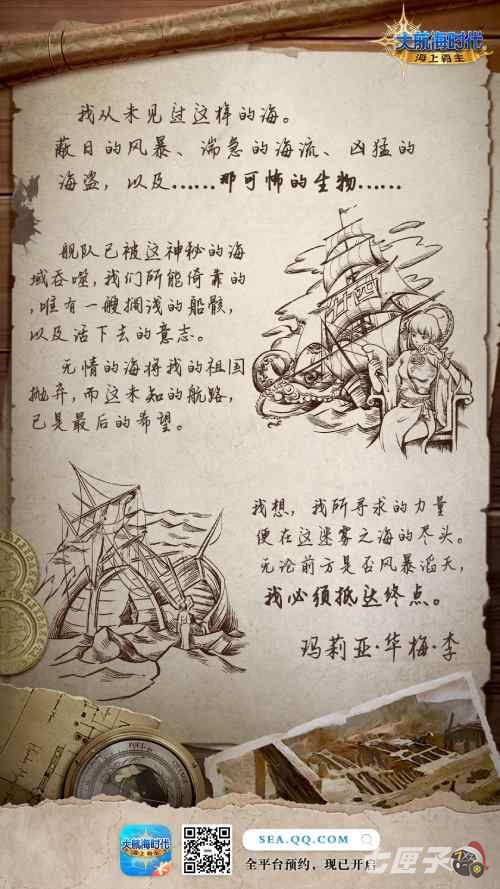 大航海时代
海上霸主
我从未见过这样的海。
蔽日的风暴、湍急的海流、凶猛的
海盗，以及……那可怖的生物……
舰队已被这神秘的海
域吞噬，我们所能倚靠的
，唯有一艘搁浅的船骸，
以及活下去的意志。
无情的海将我的祖国
抛弃，而这未知的航路，
已是最后的希望。
我想，我所寻求的力量
便在这迷雾之海的尽头。
无论前方是否风暴滔天，
我必须抵达终点。
玛莉亚·华梅·李
FUEL
大航海时代
海上霸主
SEA.QQ.COM
全平台预约，现已开启
七匣子